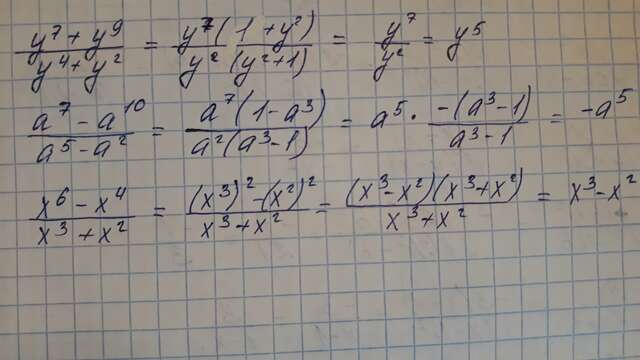 (y⁷ + y⁹)/(y⁴ + y²) = (y⁷(1 + y²))/(y²(y²+1)) = y⁷/y² = y⁵
(a⁷ - a¹⁰)/(a⁵ - a²) = (a⁷(1 - a³))/(a²(a³-1)) = a⁵ · (-(a³-1))/(a³-1) = -a⁵
(x⁶ - x⁴)/(x³ + x²) = ((x³)² - (x²)²)/(x³ + x²) = ((x³ - x²)(x³ + x²))/(x³ + x²) = x³ - x²